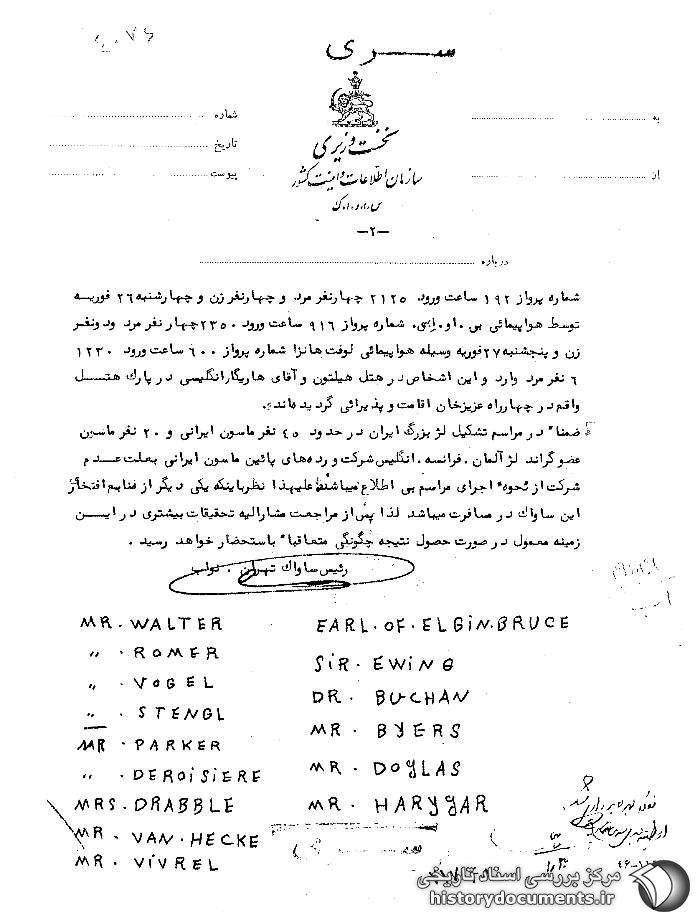 سری
به
شماره
نخست وزیری
تاریخ
سازمان اطلاعات و امنیت کشور
از
پیوست
س.ا.و.ا.ک
-۲-
درباره
شماره پرواز ۱۹۲ ساعت ورود ۲۱۲۵ چهارنفر مرد و چهارنفر زن و چهارشنبه ۲۶ فوریه
توسط هواپیمائی بی .او.ای.سی. شماره پرواز ۹۱۶ ساعت ورود ۲۳۵۰ چهار نفر مرد ودونفر
زن و پنجشنبه ۲۷ فوریه وسیله هواپیمائی لوفت هانزا شماره پرواز ۶۰۰ ساعت ورود ۱۲۳۰
۶ نفر مرد وارد و این اشخاص در هتل هیلتون و آقای هاریگارانگلیسی در پارك هتـــل
واقع در چهارراه عزیزخان اقامت و پذیرائی گردیده‌اند.
ضمنا" در مراسم تشکیل لژ بزرگ ایران در حدود ۴۵ نفر ماسون ایرانی و ۲۰ نفر ماسین
عضو گراند لژ آلمان . فرانسه . انگلیس شرکت و رده‌های پائین ماسون ایرانی بعلت عــدم
شرکت از نحوه اجرای مراسم بی اطلاع میباشند علیهذا نظر باینکه یکی دیگر از منابع افتخاری
این ساواك در مسافرت میباشد لذا پس از مراجعت مشارالیه تحقیقات بیشتری در ایــن
زمینه معمول در صورت حصول نتیجه چگونگی متعاقبا" باستحضار خواهد رسید .
رئیس ساواك تهران . نواب
MR. WALTER
EARL. OF. ELGIN. BRUCE
" . ROMER
SIR. EWING
" . VOGEL
DR. BUCHAN
" . STENGL
MR. BYERS
MR . PARKER
MR. DOYLAS
" . DEROISIERE
MR. HARYYAR
MRS. DRABBLE
MR. VAN. HECKE
MR. VIVREL
مرکز بررسی اسناد تاریخی
historydocuments.ir